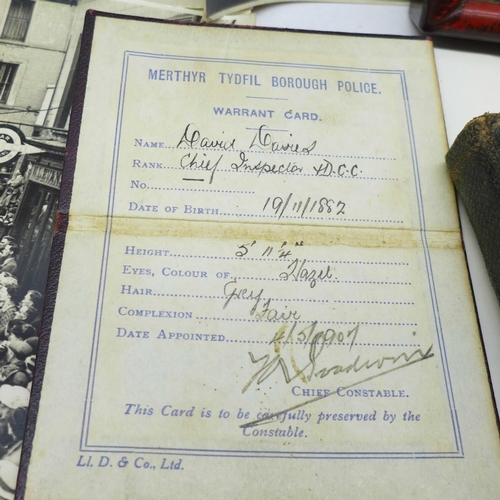 MERTHYR TYDFIL BOROUGH POLICE.
WARRANT CARD.
NAME David Davies
RANK Chief Inspector & D.C.C.
No.
DATE OF BIRTH 19/11/1882
HEIGHT 5' 11¼"
EYES, COLOUR OF Hazel.
HAIR Grey
COMPLEXION Fair
DATE APPOINTED 4/5/1907
CHIEF CONSTABLE.
This Card is to be carefully preserved by the
Constable.
Ll. D. & Co., Ltd.